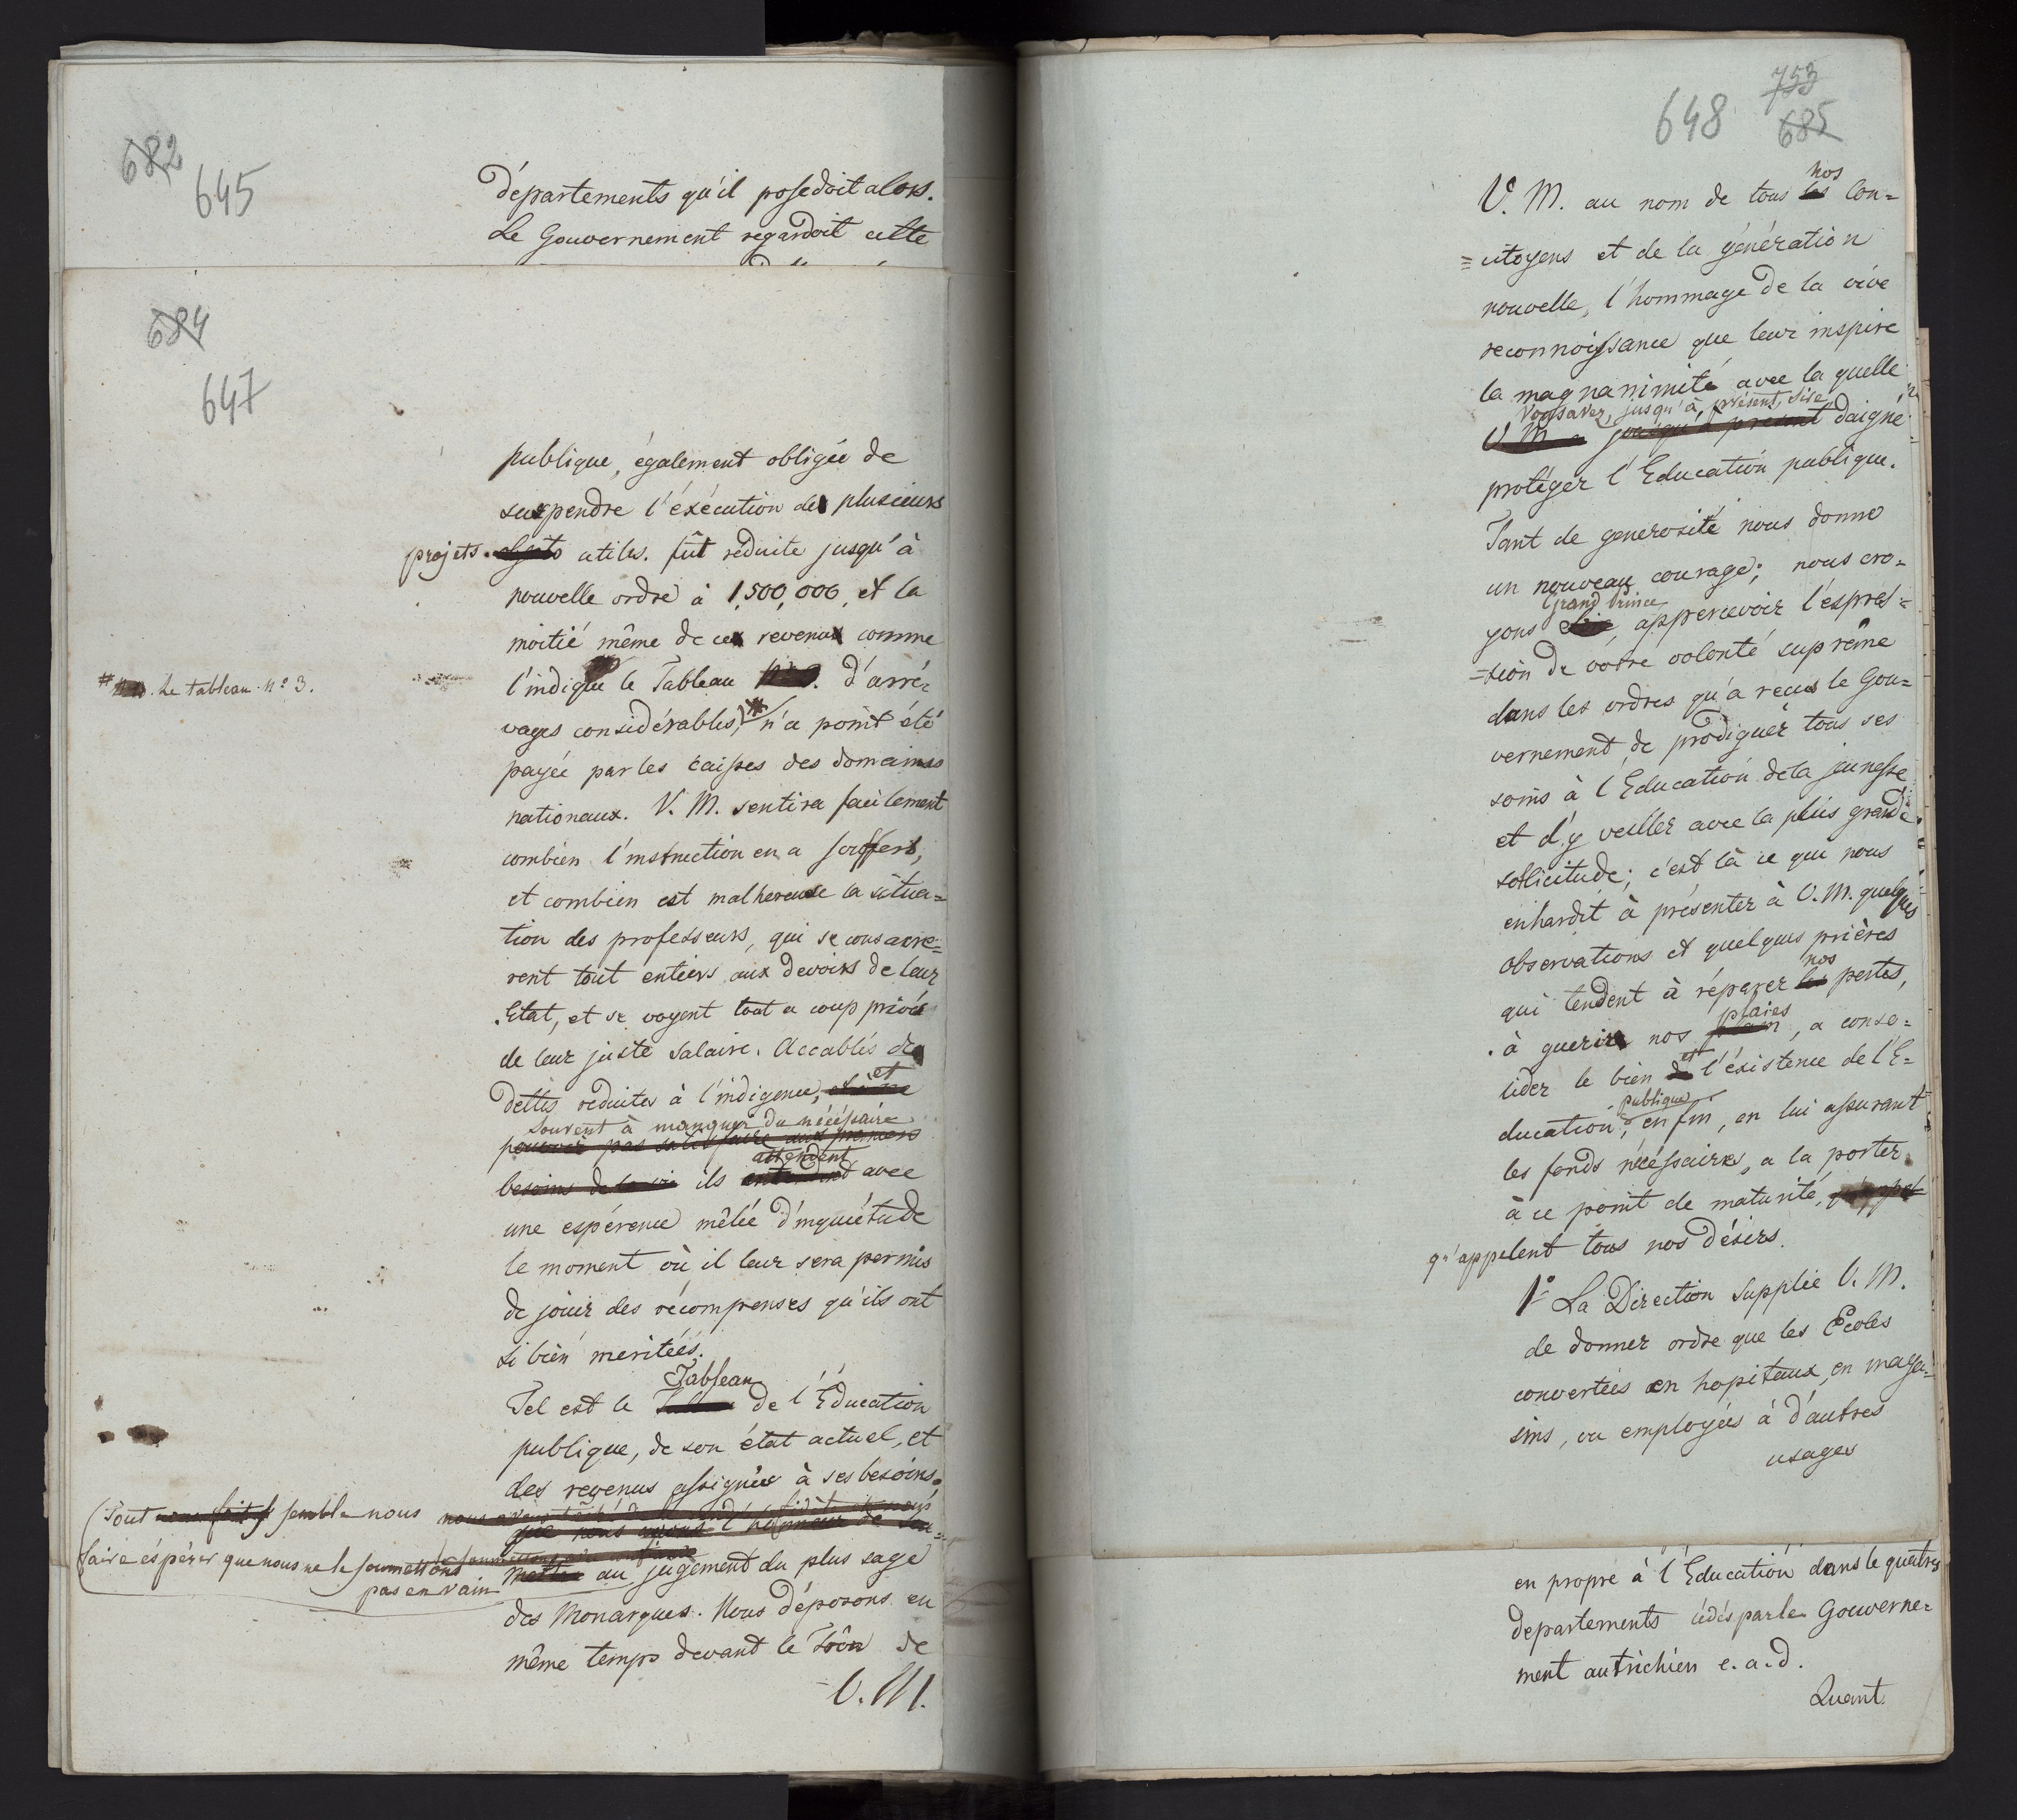 682
645
départements qu'il posedoit alors.
Le Gouvernement regardoit cette
684
647
publique, également obligée de
suspendre l'éxécution de plusieurs
projets utiles. fût réduite jusqu'à
nouvelle ordre à 1,500,000, et la
moitié même de ces revenus comme
l'indique le Tableau No 3. d'arré-
# Le tableau No 3.
rages considérables,) # n'a point été
payée par les caisses des domaines
nationaux. V. M. sentira facilement
combien l'instruction en a souffert,
et combien est malhereuse la situa=
tion des professeurs, qui se consacre-
rent tout entiers aux devoirs de leur
Etat, et se voyent tout a coup privés
de leur juste salaire. Accablés de
dettes reduites à l'indigence, et
souvent à manquer du nécéssaire
pouvoir pas satisfaire aux premiers
besoins de la vie ils attendent avec
une espérence mêlée d'inquiétude
le moment où il leur sera permis
de jouir des récompenses qu'ils ont
si bien meritéés.
Tableau
Tel est le de l'Education
publique, de son état actuel, et
des revenus assignées à ses besoins.
(Tout semble nous
que nous avons l'honneur de sou=
faire éspérer que nous ne le soumettons
pas en vain
mettre au jugement du plus sage
des Monarques. Nous déposons en
même temps devant le Trôn de
V. M.
648
753
685
nos
V. M. au nom de tous les Con=
=citoyens et de la génération
nouvelle, l'hommage de la vive
reconnoissance que leur inspire
la magnanimité avec la quelle
Vous avez, jusqu'à présent, Sire
V. M. a jusqu'à present daigné
protéger l'Education publique.
Tant de generosité nous donne
un nouveau courage; nous cro=
Grand Prince
yons Sire, appercevoir l'espres=
=sion de votre volonté suprême
dans les ordres qu'a recus le Gou=
vernement, de prodiguer tous ses
soins à l'Education de la jeunesse
et d'y veiller avec la plus grande
sollicitude; c'est là ce qui nous
enhardit à présenter à V. M. quelques
observations et quelques prières
nos
qui tendent à réparer les pertes,
plaies
à guerir nos , a conso=
et
lider le bien de l'éxistence de l'E=
publique
ducation, enfin, en lui assurant
les fonds nécéssaires, a la porter
à ce point de maturité, qu'appel
qu'appelent tous nos désirs.
1o La Direction supplie V. M.
de donner ordre que les Ecoles
converties en hopitaux, en maga=
sins, ou employées à d'autres
usages
en propre à l'Education dans le quatres
departements cédés par le Gouverne=
ment autrichien e. a. d.
Quant